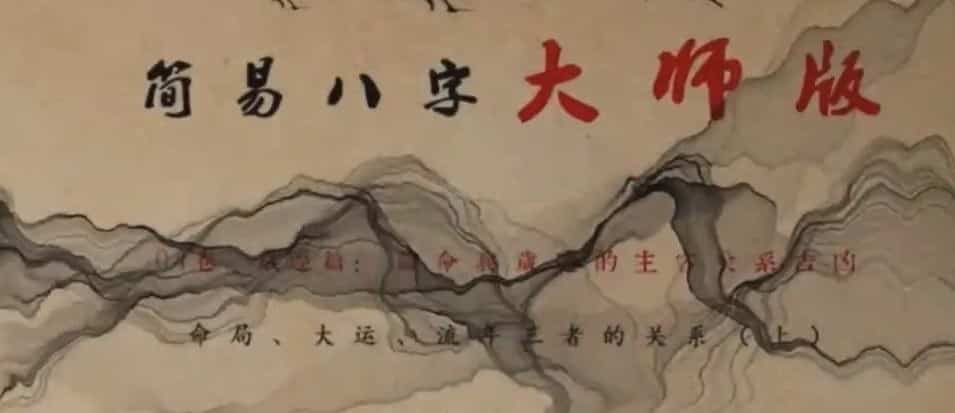 简易八字大师版
篇：命歲的主关系吉凶
命局、大运、流年三者的关系（上）